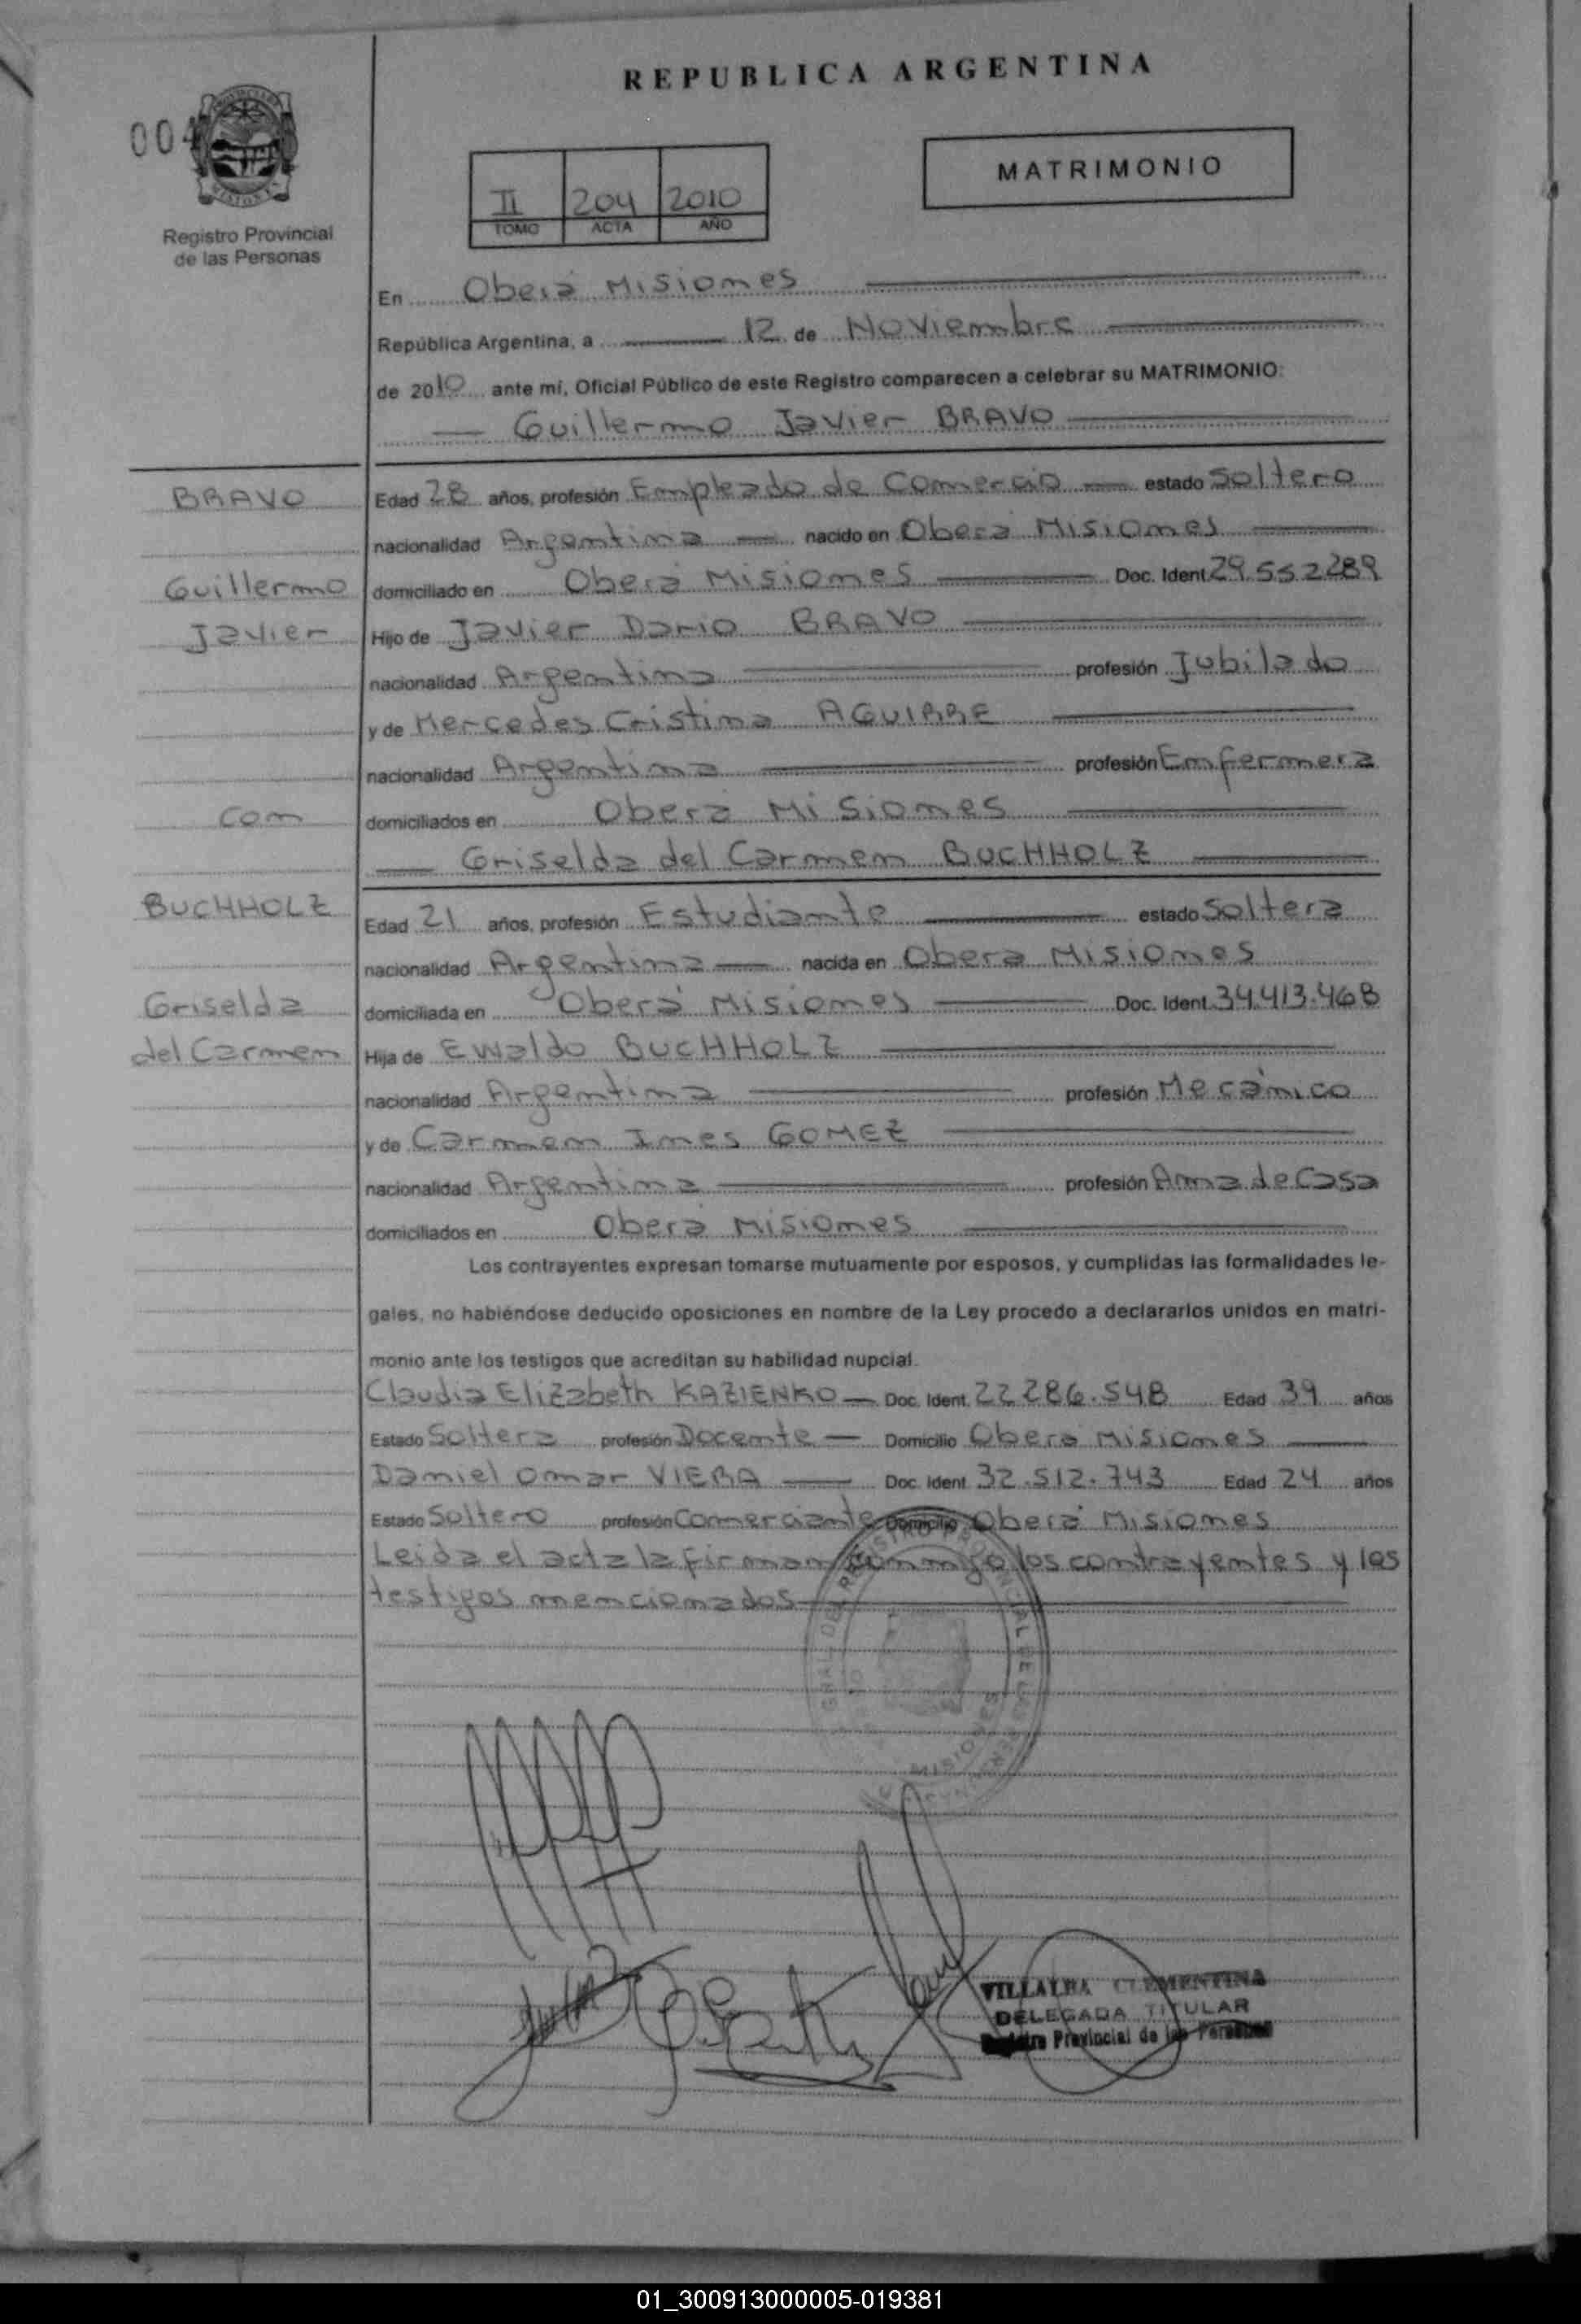 REPUBLICA ARGENTINA
004
MATRIMONIO
II 204 2010
TOMO ACTA AÑO
Registro Provincial
de las Personas
En Oberá Misiones
República Argentina, a 12 de Noviembre
de 2010 ante mí, Oficial Público de este Registro comparecen a celebrar su MATRIMONIO:
Guillermo Javier BRAVO
BRAVO
Edad 28 años, profesión Empleado de Comercio estado Soltero
nacionalidad Argentina nacido en Oberá Misiones
Guillermo
domiciliado en Oberá Misiones Doc. Ident. 29.552.289
Javier
Hijo de Javier Dario BRAVO
nacionalidad Argentina profesión Jubilado
y de Mercedes Cristina AGUIRRE
nacionalidad Argentina profesión Enfermera
con
domiciliados en Oberá Misiones
Griselda del Carmen BUCHHOLZ
BUCHHOLZ
Edad 21 años, profesión Estudiante estado Soltera
nacionalidad Argentina nacida en Oberá Misiones
Griselda
domiciliada en Oberá Misiones Doc. Ident. 34.413.468
del Carmen
Hija de Ewaldo BUCHHOLZ
nacionalidad Argentina profesión Mecánico
y de Carmen Ines GOMEZ
nacionalidad Argentina profesión Ama de Casa
domiciliados en Oberá Misiones
Los contrayentes expresan tomarse mutuamente por esposos, y cumplidas las formalidades le-
gales, no habiéndose deducido oposiciones en nombre de la Ley procedo a declararlos unidos en matri-
monio ante los testigos que acreditan su habilidad nupcial.
Claudia Elizabeth KAZIENKO Doc. Ident. 22.286.548 Edad 39 años
Estado Soltera profesión Docente Domicilio Oberá Misiones
Daniel Omar VIERA Doc. Ident. 32.512.743 Edad 24 años
Estado Soltero profesión Comerciante Domicilio Oberá Misiones
Leida el acta la firman conmigo los contrayentes y los
testigos mencionados
VILLALBA CLEMENTINA
DELEGADA TITULAR
Registro Provincial de las Personas
01_300913000005-019381